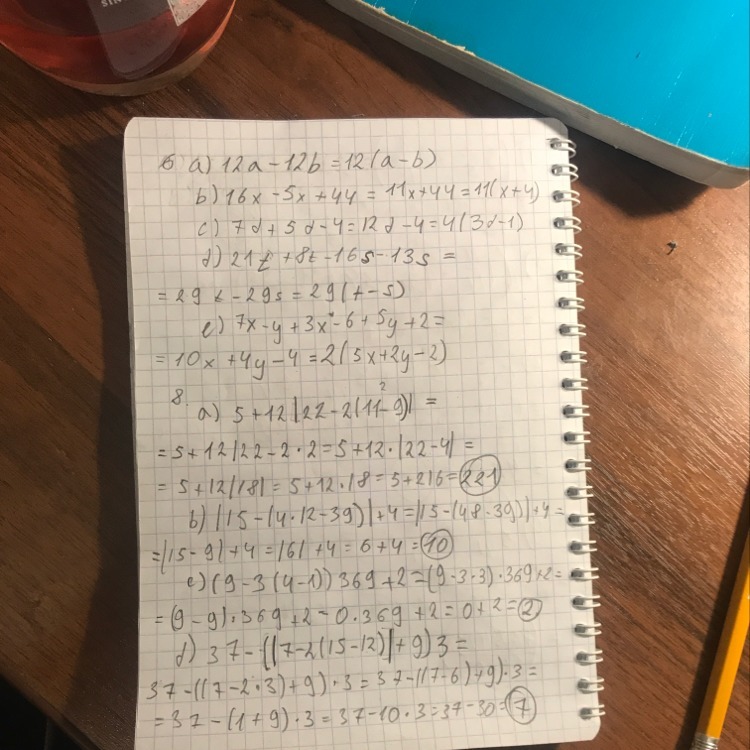 6 a) 12a-12b=12(a-b)
b) 16x-5x+44=11x+44=11(x+4)
c) 7d+5d-4=12d-4=4(3d-1)
d) 21t+8t-16s-13s=
=29t-29s=29(t-s)
e) 7x-y+3x-6+5y+2=
=10x+4y-4=2(5x+2y-2)
8. a) 5+12|22-2(11-9)|=
=5+12|22-2·2=5+12·|22-4|=
=5+12|18|=5+12·18=5+216=221
b) |15-(4·12-39)|+4=|15-(48-39)|+4=
=|15-9|+4=|6|+4=6+4=10
c) (9-3(4-1))369+2=(9-3·3)·369+2=
=(9-9)·369+2=0·369+2=0+2=2
d) 37-(|7-2(15-12)|+9)3=
37-((7-2·3)+9)·3=37-((7-6)+9)·3=
=37-(1+9)·3=37-10·3=37-30=7